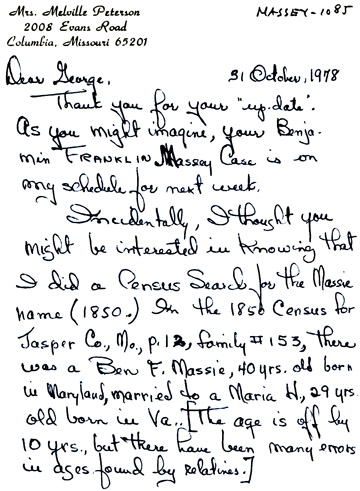 Mrs. Melville Peterson
2008 Evans Road
Columbia, Missouri 65201
MASSEY-1085
Dear George,
31 October, 1978
Thank you for your "up-date".
As you might imagine, your Benja-
min FRANKLIN Massey Case is on
my schedule for next week.
Incidentally, I thought you
might be interested in knowing that
I did a Census Search for the Massie
name (1850.) In the 1850 Census for
Jasper Co., Mo., p. 12, family #153, there
was a Ben F. Massie, 40 yrs. old born
in Maryland, married to a Maria H, 29 yrs.
old born in Va.. [The age is off by
10 yrs., but there have been many errors
in ages found by relatives.]